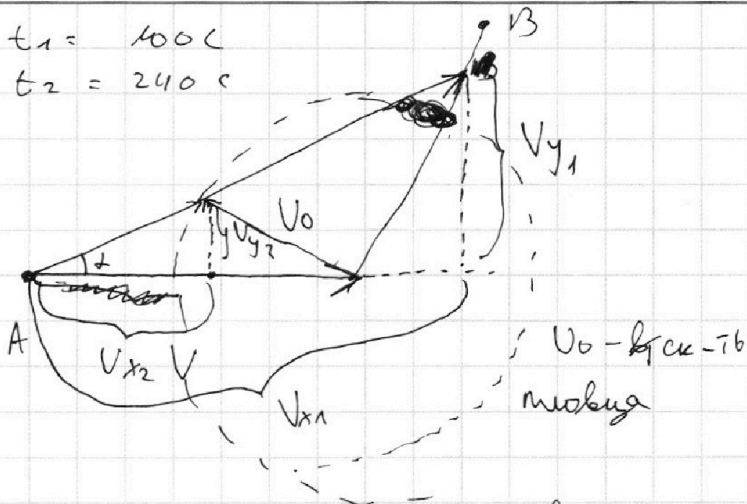 t₁ = 100 с
t₂ = 240 с
B
Vy₁
U₀
Vy₂
α
A
Vx₂ V
Vx₁
U₀ -
пловца